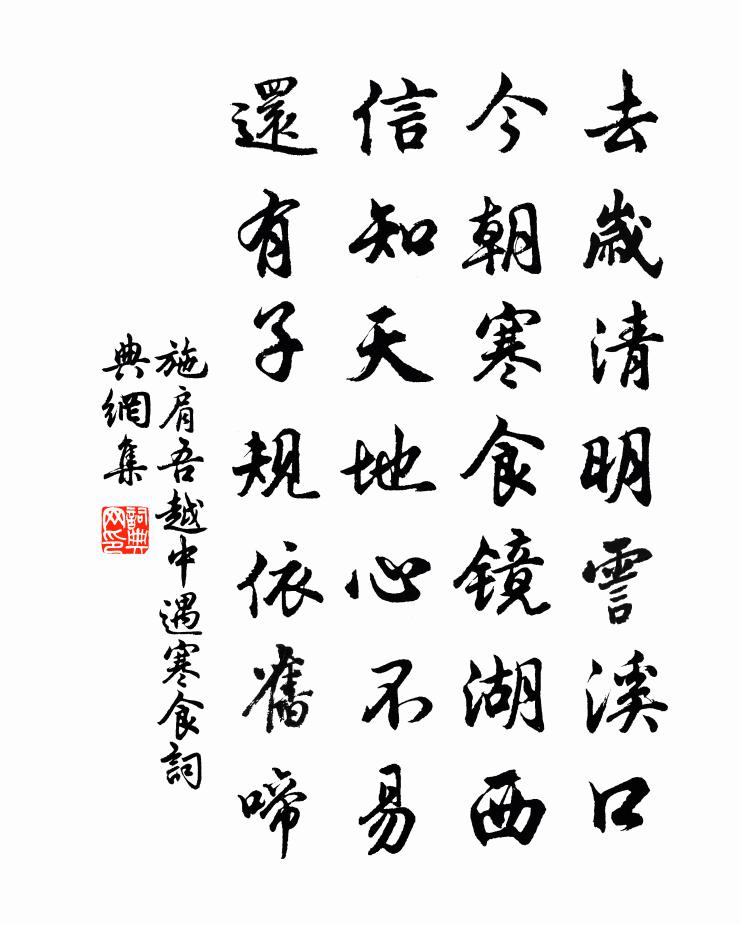 去歲清明霅溪口
今朝寒食镜湖西
信知天地心不易
還有子規依舊啼
施肩吾越中遇寒食詞
典網集
詞典网印